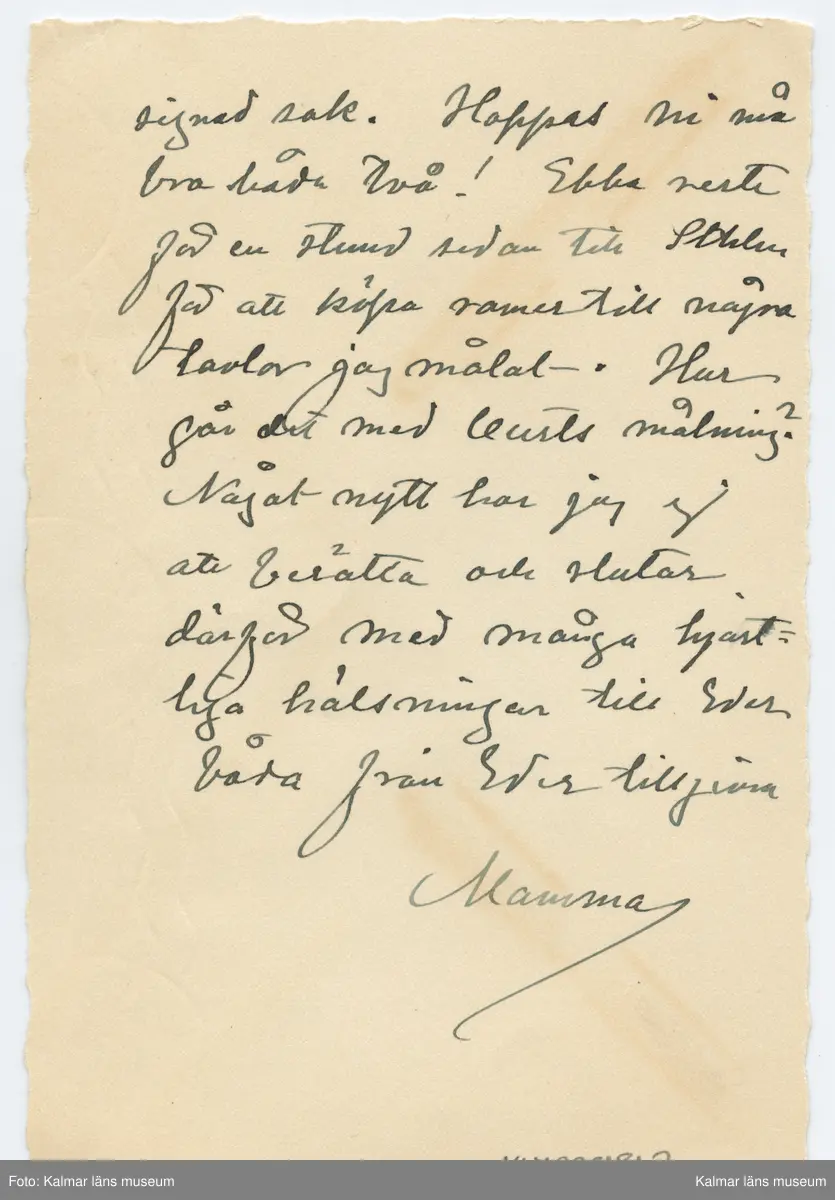 signad sak. Hoppas ni må
bra båda två! Ebba reste
för en stund sedan till Sthlm
för att köpa ramer till några
tavlor jag målat. Hur
går det med Curts målning?
Något nytt har jag ej
att berätta och slutar
därför med många hjärt=
liga hälsningar till Eder
båda från Eder tillgivna
Mamma
Foto: Kalmar läns museum
Kalmar läns museum